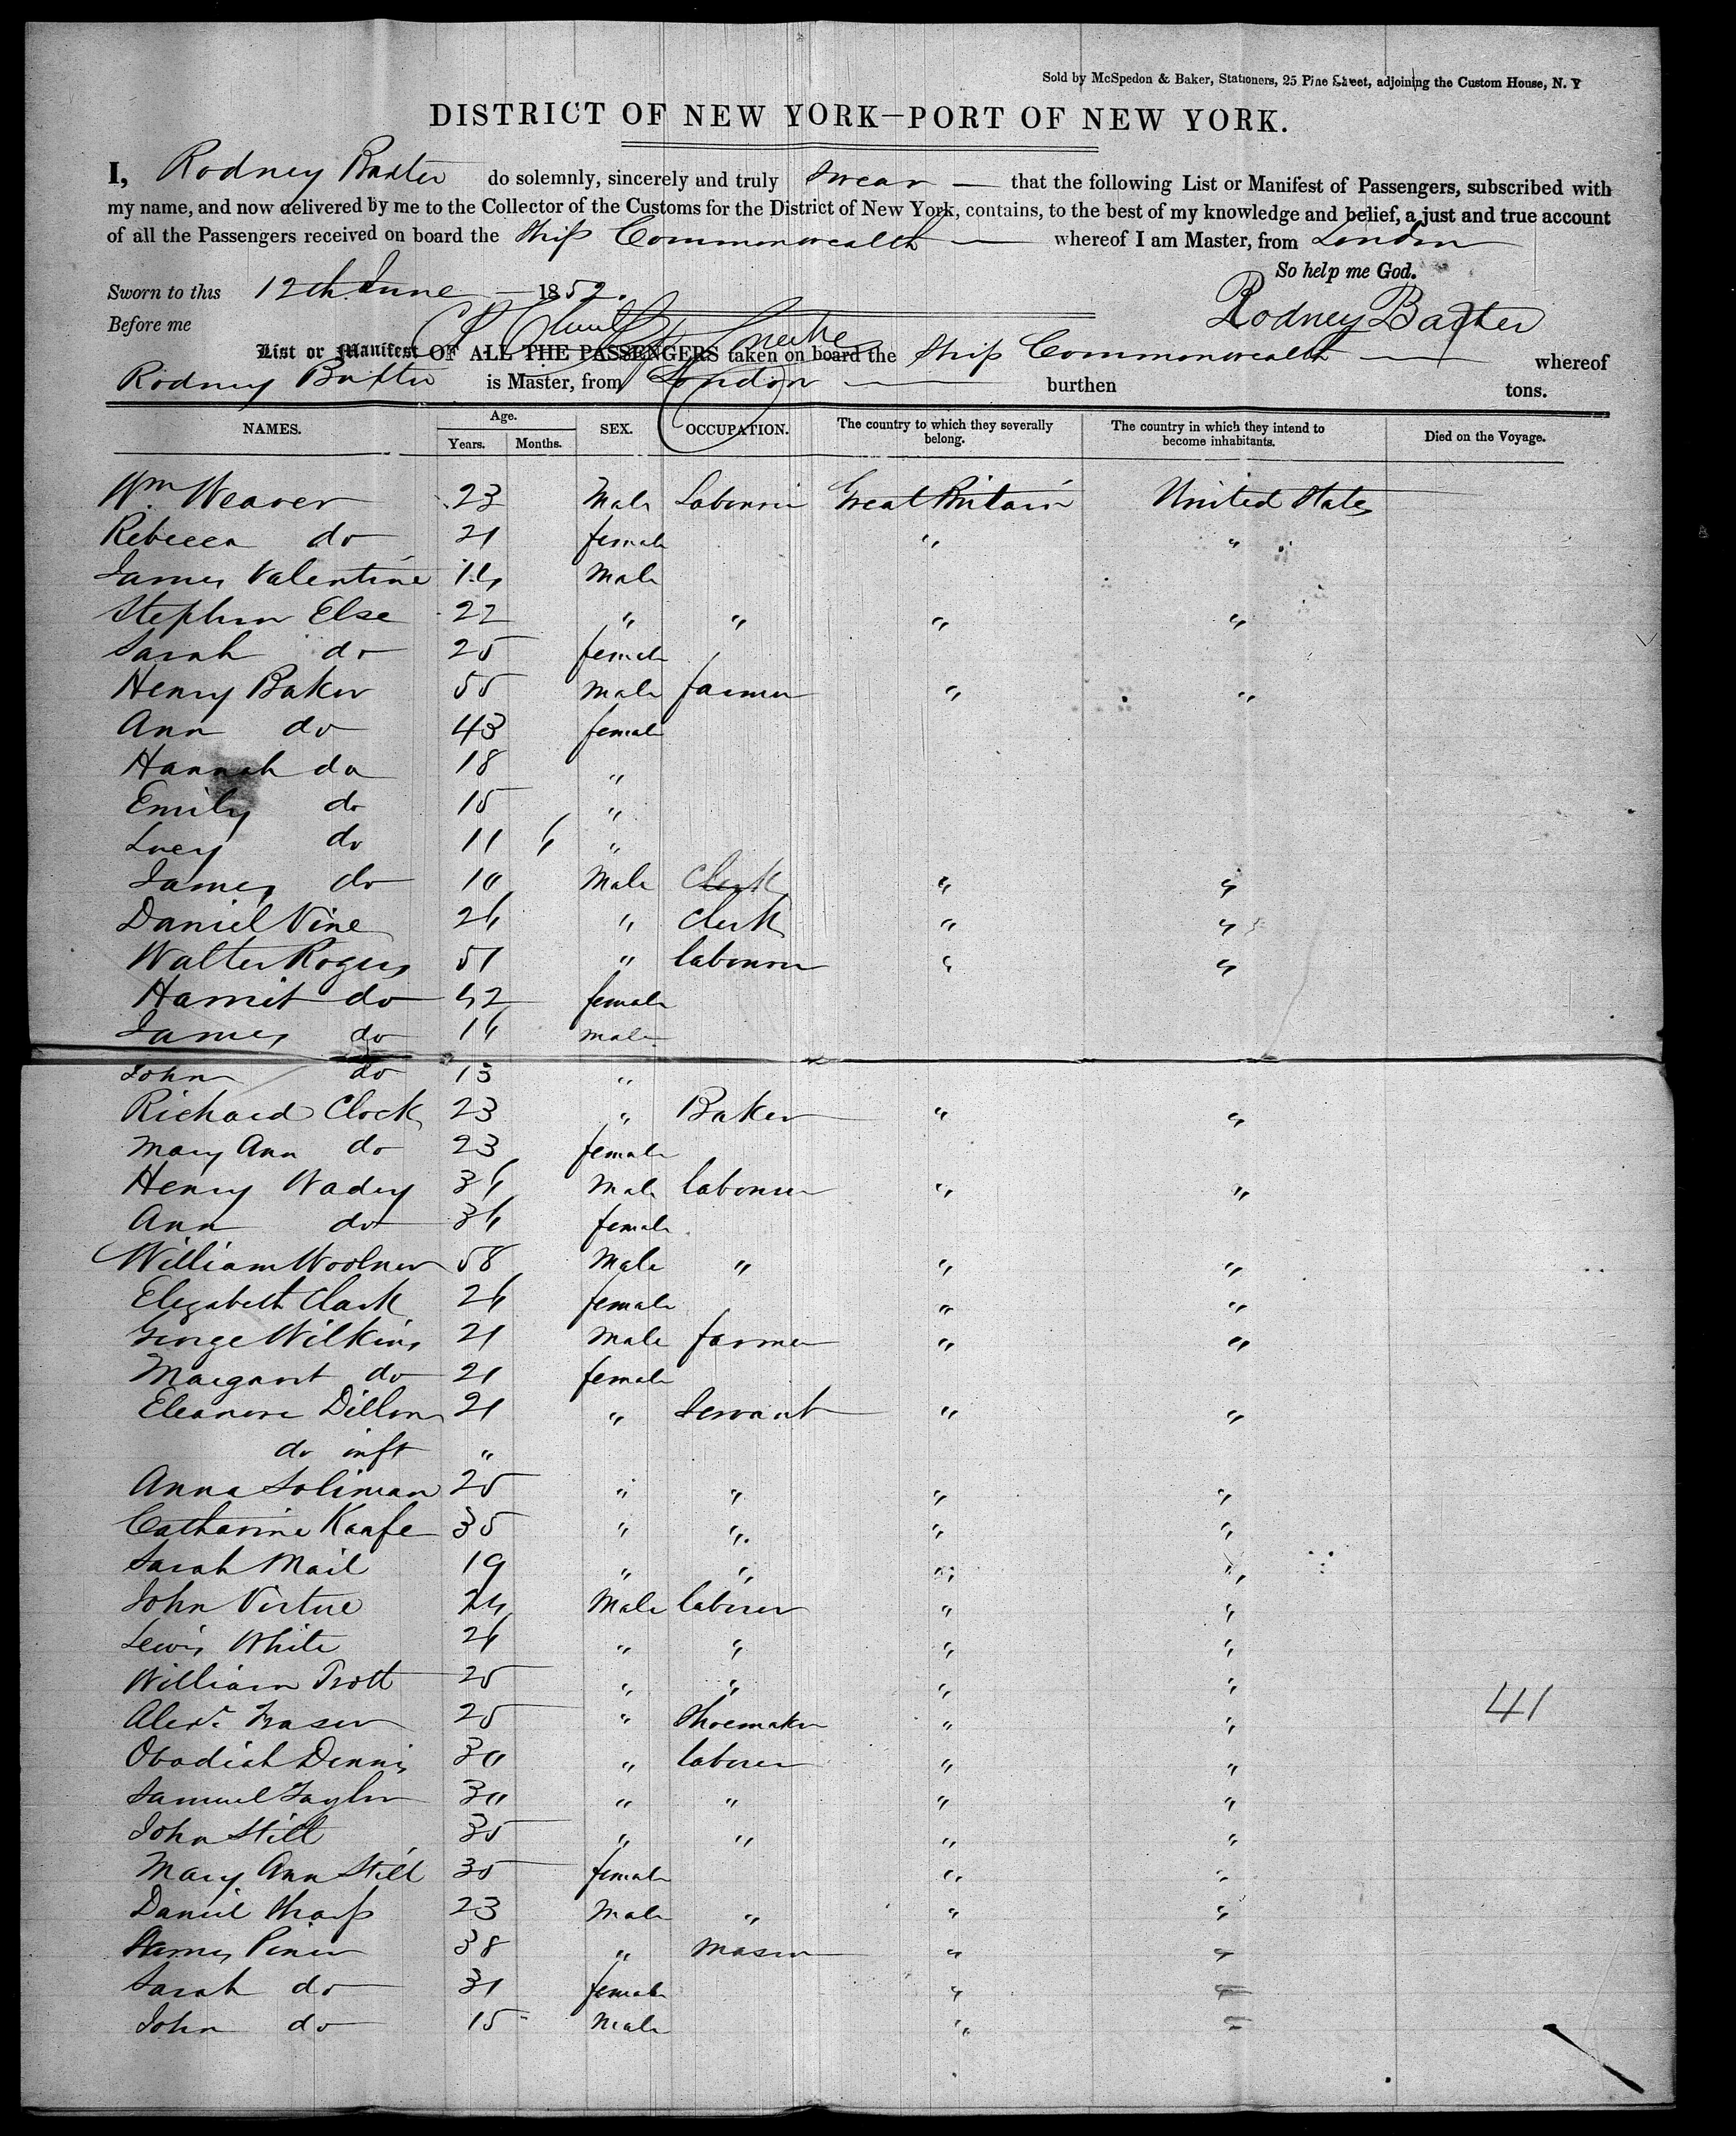 Sold by McSpedon & Baker, Stationers, 25 Pine Street, adjoining the Custom House, N. Y
DISTRICT OF NEW YORK—PORT OF NEW YORK.
I, Rodney Baxter do solemnly, sincerely and truly swear — that the following List or Manifest of Passengers, subscribed with
my name, and now delivered by me to the Collector of the Customs for the District of New York, contains, to the best of my knowledge and belief, a just and true account
of all the Passengers received on board the Ship Commonwealth — whereof I am Master, from London
So help me God.
Sworn to this 12th June — 1852.
Rodney Baxter
Before me
List or Manifest OF ALL THE PASSENGERS taken on board the Ship Commonwealth — whereof
Rodney Baxter is Master, from London — burthen tons.
NAMES. Age. Years. Months. SEX. OCCUPATION. The country to which they severally belong. The country in which they intend to become inhabitants. Died on the Voyage.
Wm. Weaver 23 Male Labourer Great Britain United States
Rebecca do 21 female " "
James Valentine 14 Male
Stephen Else 22 " " " "
Sarah do 25 female
Henry Baker 55 Male farmer " "
Ann do 43 female
Hannah do 18 "
Emily do 15 "
Lucy do 11 6 "
James do 10 Male Clerk " "
Daniel Vine 26 " Clerk " "
Walter Rogers 51 " labourer " "
Harriet do 42 female
James do 16 male
John do 13 "
Richard Clock 23 " Baker " "
Mary Ann do 23 female
Henry Wadey 36 Male labourer " "
Ann do 36 female
William Woolner 58 Male " " "
Elizabeth Clark 26 female " "
George Wilkins 21 Male farmer " "
Margaret do 21 female
Eleanore Dillon 21 " Servant " "
do inft "
Anna Soliman 25 " " " "
Catharine Kaafe 35 " " " "
Sarah Mail 19 " " " "
John Virtue 24 Male laborer " "
Lewis White 26 " " " "
William Trott 25 " " " "
Alexr. Fraser 25 " Shoemaker " " 41
Obadiah Dennis 30 " laborer " "
Samuel Taylor 30 " " " "
John Still 35 " " " "
Mary Ann Still 35 female " "
Daniel Tharp 23 Male " " "
James Piner 38 " Mason " "
Sarah do 31 female " "
John do 15 Male " "